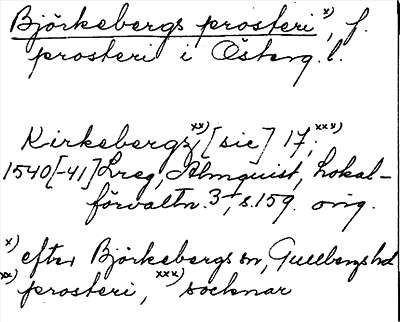 Björkebergs prosteri x), f.
prosteri i Österg. l.
Kirkebergz xx), [sic] 17, xxx)
1540[-41] Lreg, Almquist, Lokal-
förvaltn. 3, s. 159. orig.
x) efter Björkebergs sn, Gullbergs hd
xx) prosteri, xxx) socknar